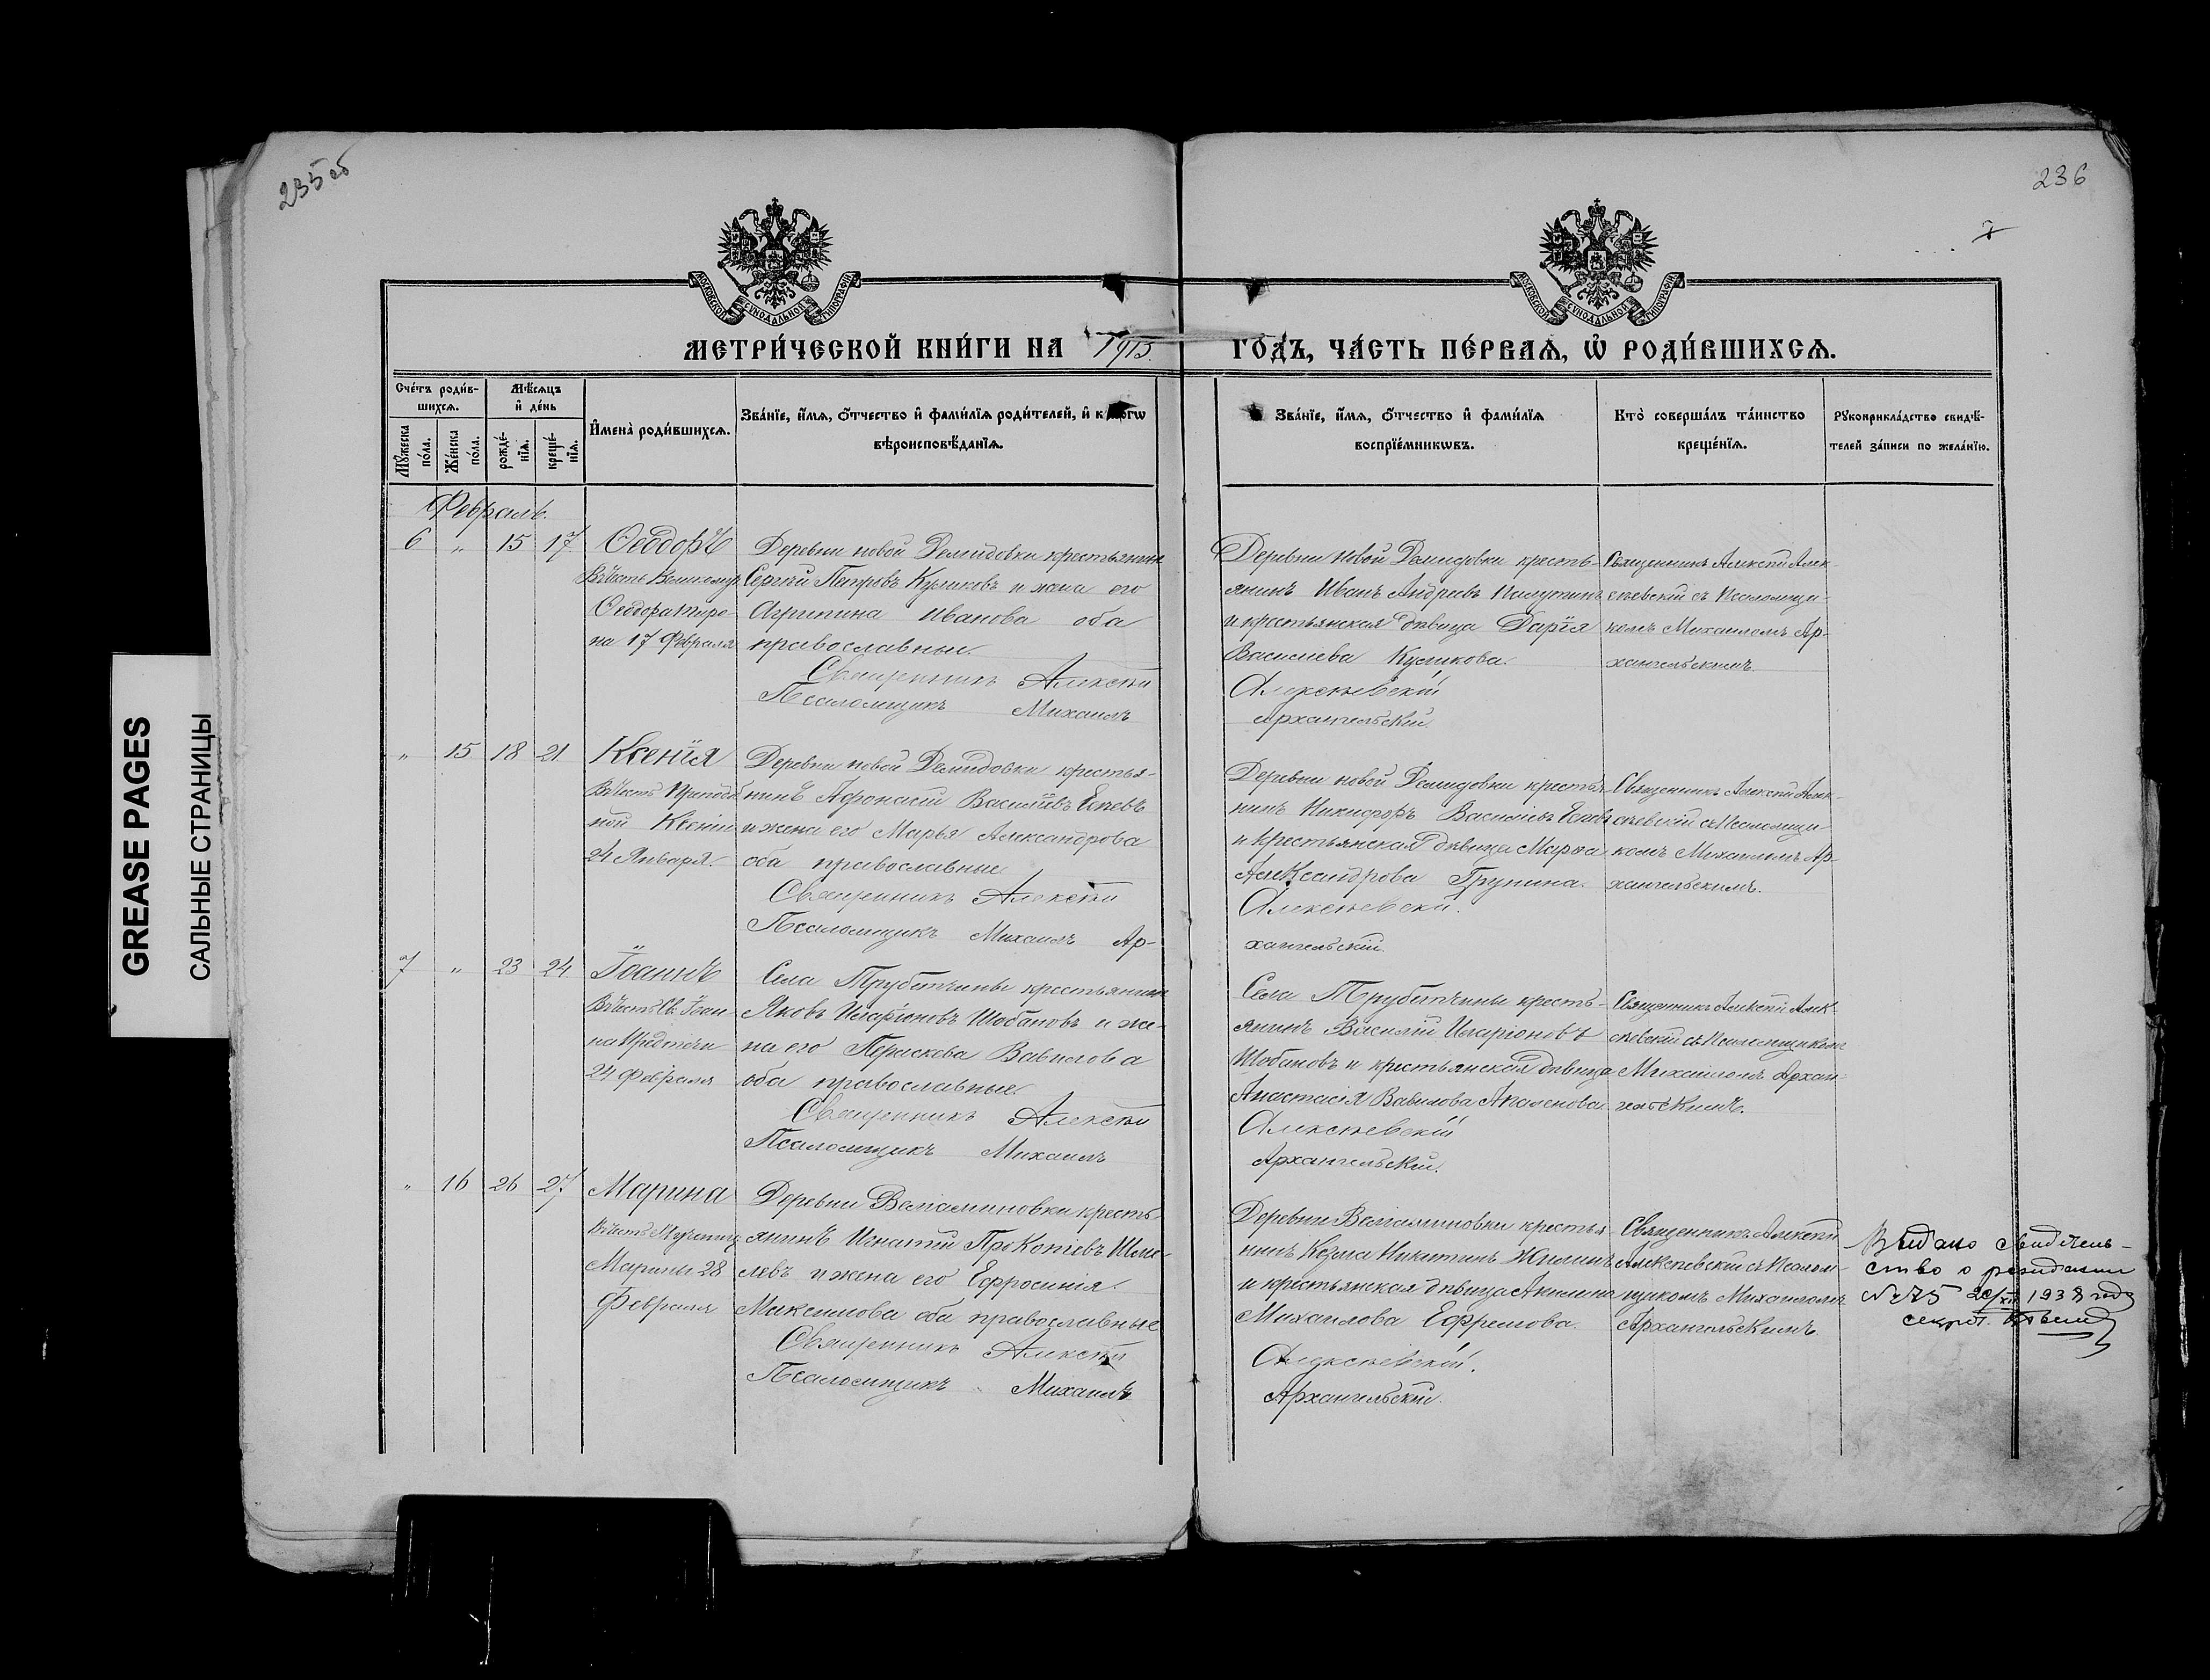 235 об
236
GREASE PAGES
САЛЬНЫЕ СТРАНИЦЫ
МОСКОВСКОЙ СѴНОДАЛЬНОЙ ТИПОГРАФІИ
МОСКОВСКОЙ СѴНОДАЛЬНОЙ ТИПОГРАФІИ
МЕТРИ́ЧЕСКОЙ КНИ́ГИ НА 1915
ГОДЪ, ЧА́СТЬ ПЕ́РВАѦ, Ѡ҆ РОДИ́ВШИХСѦ.
Сче́тъ роди́в-
шихсѧ.
Мѣ́сѧцъ
и҆ де́нь
Мꙋ́жеска
по́ла.
Же́нска
по́ла.
рожде́-
нїѧ.
креще́-
нїѧ.
И҆мена̀ роди́вшихсѧ.
Зва́нїе, и҆́мѧ, ѻ҆́тчество и҆ фами́лїѧ роди́телей, и҆
вѣроисповѣ́данїѧ.
Зва́нїе, и҆́мѧ, ѻ҆́тчество и҆ фами́лїѧ
воспрїе́мникѡвъ.
Кто̀ соверша́лъ та́инство
креще́нїѧ.
Рꙋкоприкла́дство свидѣ́-
телей за́писи по жела́нїю.
Февраль.
6 " 15 17 Ѳеодоръ
Въ честь Великомуч
Ѳеодора Тиро-
на 17 Февраля
Деревни новой Демидовки крестьянин
Сергѣй Петровъ Куликовъ и жена его
Агрипина Иванова оба
православные.
Священникъ Алексѣй
Псаломщикъ Михаилъ
Деревни новой Демидовки кресть-
янинъ Иванъ Андреевъ
и крестьянская дѣвица Дарія
Василіева Куликова.
Алексѣевскій
Архангельскій.
Священникъ Алексѣй Алек-
сѣевскій съ Псаломщи-
комъ Михаиломъ Ар-
хангельскимъ.
" 15 18 21 Ксенія
Въ честь Преподоб
ной Ксеніи
24 Января.
Деревни новой Демидовки крестья-
нинъ Афонасій Василіевъ
и жена его Марья Александрова
оба православные.
Священникъ Алексѣй
Псаломщикъ Михаилъ Ар-
Деревни новой Демидовки крестья
нинъ Никифоръ Василіевъ
и крестьянская дѣвица Марѳа
Александрова Грунина.
Алексѣевскій.
хангельскій.
Священникъ Алексѣй Алек-
сѣевскій съ Псаломщи-
комъ Михаиломъ Ар-
хангельскимъ.
7 " 23 24 Іоаннъ
Въ честь Св. Іоан-
на Предтечи
24 Февраля
Села Трубетчины крестьянин
Яковъ Иларіоновъ Шобановъ и же-
на его Пераскева Вавилова
оба православные.
Священникъ Алексѣй
Псаломщикъ Михаилъ
Села Трубетчины кресть-
янинъ Василій Иларіоновъ
Шобановъ и крестьянская дѣвица
Анастасія Вавилова
Алексѣевскій
Архангельскій.
Священникъ Алексѣй Алек-
сѣевскій съ Псаломщикомъ
Михаиломъ Архан-
гельскимъ.
" 16 26 27 Марина
Въ честь Мученицы
Марины 28
Февраля
Деревни Веніаминовки кресть-
янинъ Игнатій Прокопіевъ Шме-
левъ и жена его Ефросинія
Максимова оба православные
Священникъ Алексѣй
Псаломщикъ Михаилъ
Деревни Веніаминовки крестья
нинъ Козма Никитинъ Жилинъ
и крестьянская дѣвица Акилина
Михаилова Ефремова.
Алексѣевскій.
Архангельскій.
Священникъ Алексѣй
Алексѣевскій съ Псалом-
щикомъ Михаиломъ
Архангельскимъ.
Выдано свидетель-
ство о рождении
1938 года
секрет.